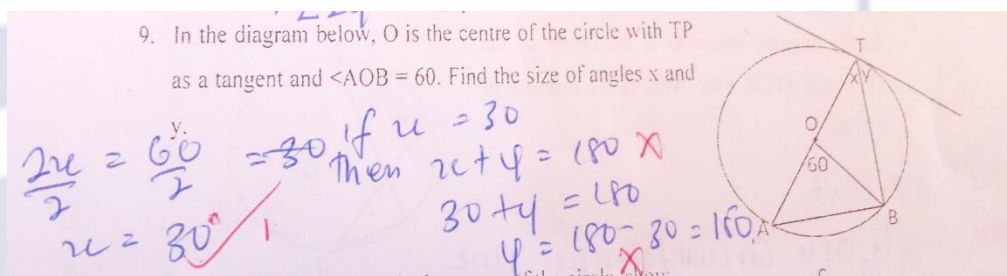 9. In the diagram below, O is the centre of the circle with TP
as a tangent and <AOB = 60. Find the size of angles x and
y.
2x/2 = 60/2 = 30
x = 30° 1
if x = 30
then x + y = 180 X
30 + y = 180
y = 180 - 30 = 150 X
T
x y
O
60
A
B